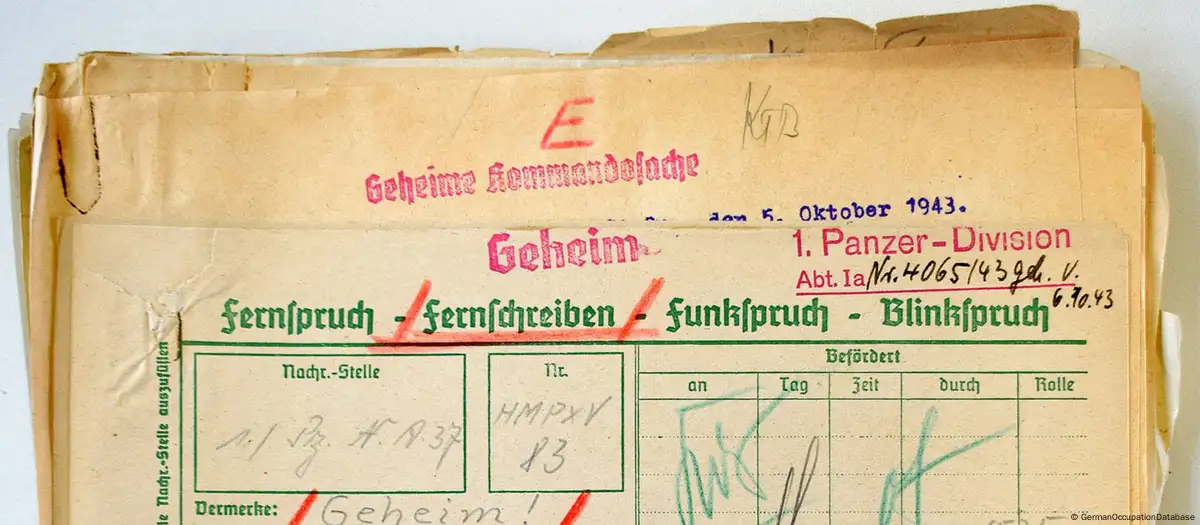 E
KTB
Geheime Kommandosache
den 5. Oktober 1943.
Geheim
1. Panzer-Division
Abt. Ia Nr. 4065/43 geh. v.
6.10.43
Fernspruch - Fernschreiben - Funkspruch - Blinkspruch
le Nachr.-Stelle auszufüllen
Nachr.-Stelle
1./ Pz. N. A 37
Nr.
HMPXV
83
Befördert
an Tag Zeit durch Rolle
Vermerke: Geheim!
© GermanOccupationDatabase